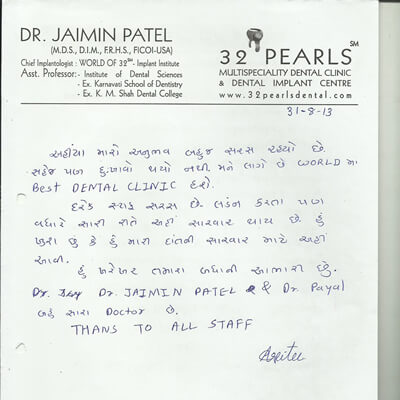 DR. JAIMIN PATEL
(M.D.S., D.I.M., F.R.H.S., FICOI-USA)
Chief Implantologist : WORLD OF 32SM- Implant Institute
Asst. Professor: - Institute of Dental Sciences
- Ex. Karnavati School of Dentistry
- Ex. K. M. Shah Dental College
32 PEARLS SM
MULTISPECIALITY DENTAL CLINIC
& DENTAL IMPLANT CENTRE
www.32pearlsdental.com
31-8-13
અહીંયા મારો અનુભવ બહુજ સરસ રહ્યો છે.
સહેજ પણ દુઃખાવો થયો નથી. મને લાગે છે WORLD માં
Best DENTAL CLINIC હશે.
દરેક સ્ટાફ સરસ છે. લંડન કરતા પણ
વધારે સારી રીતે અહીં સારવાર થાય છે. હું
ખુશ છુ કે હું મારા દાંતની સારવાર માટે અહીં
આવી.
હું ખરેખર તમારા બધાની આભારી છું.
Dr. Dr. JAIMIN PATEL & Dr. Payal
બહુ સારા Doctor છે.
THANS TO ALL STAFF